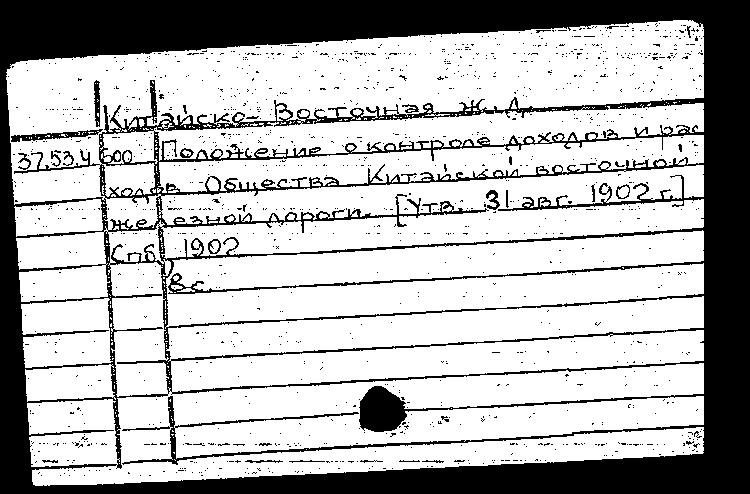 Китайско-Восточная ж.д.
37.53.4.600 Положение о контроле доходов и рас
ходов Общества Китайской восточной
железной дороги. [Утв. 31 авг. 1902 г.]
Спб, 1902
8 с.